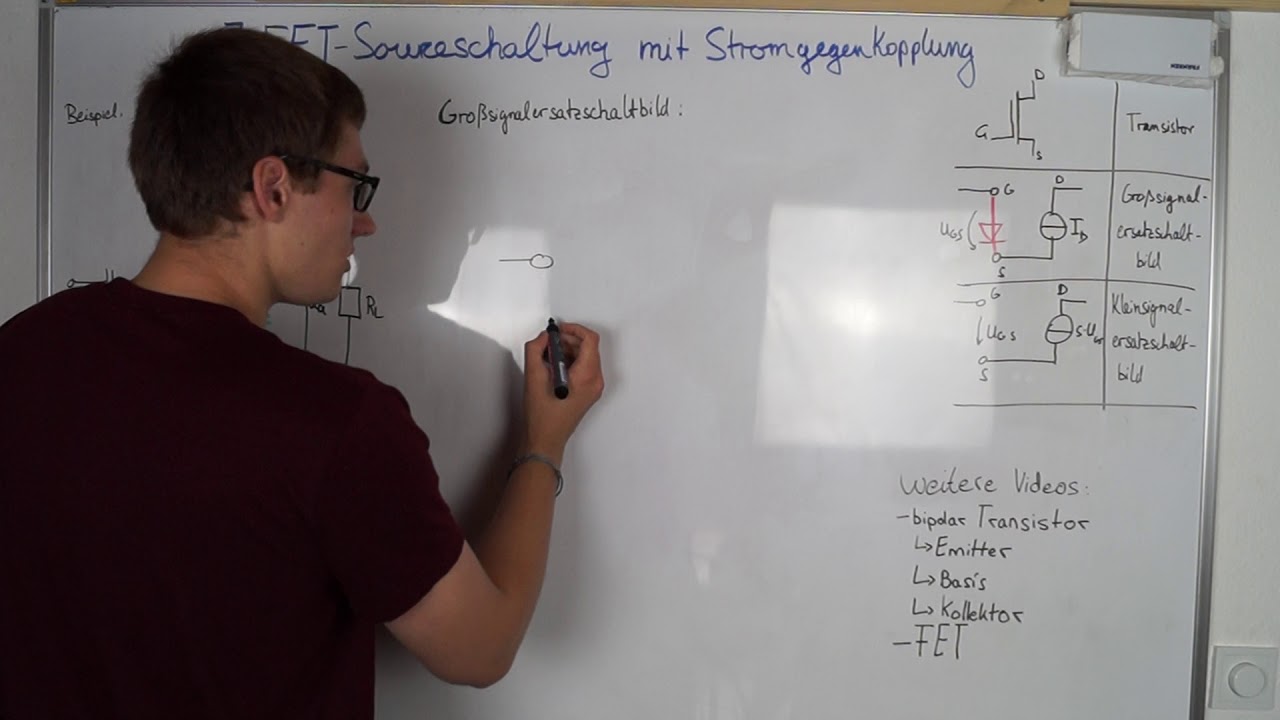 FET-Sourceschaltung mit Stromgegenkopplung
Beispiel.
Großsignalersatzschaltbild:
RL
D
G
S
Transistor
G
D
UGS
ID
S
Großsignal-
ersatzschalt-
bild
G
D
UGS
S·UGS
S
Kleinsignal-
ersatzschalt-
bild
Weitere Videos:
-bipolar Transistor
↳Emitter
↳Basis
↳Kollektor
-FET